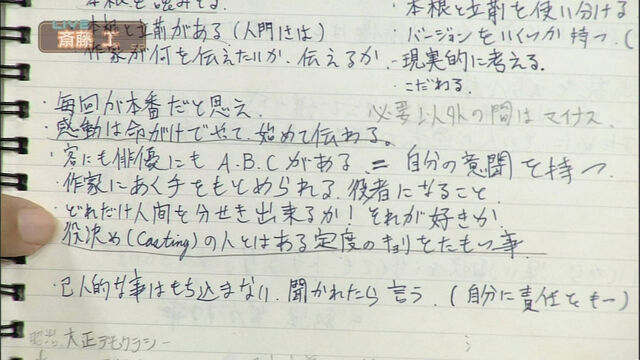 本根を認める。
・本根と立前を使い分ける
LIVE
斎藤 工
本根と立前がある(人間には)
・バージョンをいくつか持つ。(
作家が何を伝えたいか、伝えるか
・現実的に考える。
・こだわる。
・毎回が本番だと思え、
必要以外の間はマイナス。
・感動は命がけでやって、始めて伝わる。
・客にも俳優にも A.B.C がある = 自分の意聞を持つ。
・作家にあく手をもとめられる、役者になること、
・どれだけ人間を分せき出来るか!それが好きか、
・役決め(Casting)の人とはある定度のキョリをたもつ事、
・己人的な事はもち込まない。聞かれたら言う。(自分に責任をもつ)
大正デモクラシー